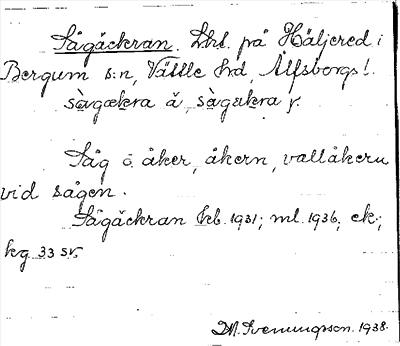 Sågåckran. Lht. på Häljered i
Bergum s:n, Vättle hd, Älfsborgs l.
sàgækra ă, sàgækra
Såg o. åker, åkern, vallåkern
vid sågen.
Sågåckran hb. 1931; ml. 1936; ek;
kg 33 sv.
D.M. Svenungsson. 1938.